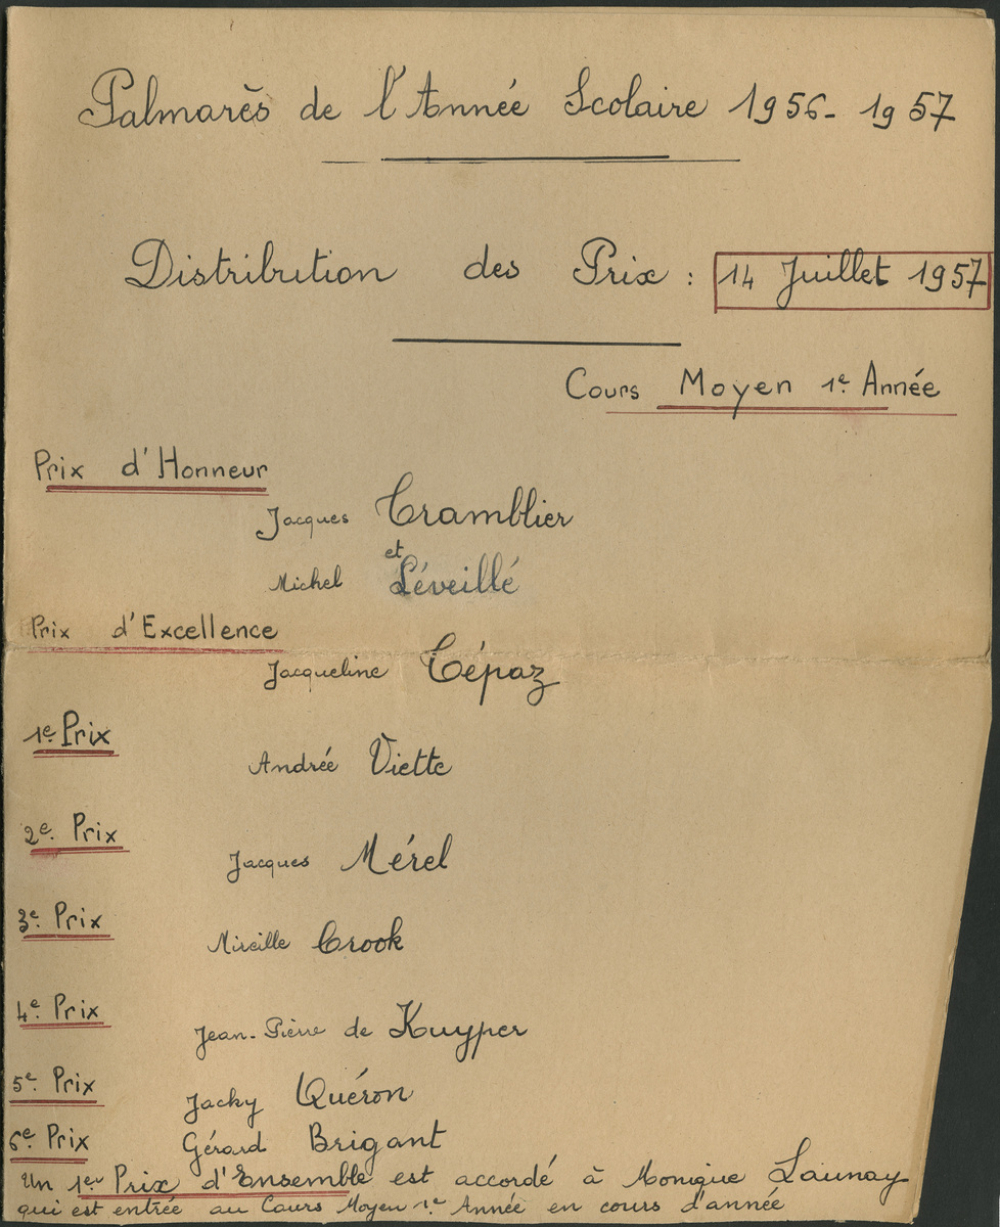 Palmarès de l'Année Scolaire 1956-1957
Distribution des Prix : 14 Juillet 1957
Cours Moyen 1e Année
Prix d'Honneur
Jacques Tramblier
et
Michel Léveillé
Prix d'Excellence
Jacqueline Tépaz
1e. Prix
Andrée Viette
2e. Prix
Jacques Mérel
3e. Prix
Mireille Crook
4e. Prix
Jean-Pierre de Kuyper
5e. Prix
Jacky Quéron
6e. Prix
Gérard Brigant
Un 1er Prix d'Ensemble est accordé à Monique Launay
qui est entrée au Cours Moyen 1e Année en cours d'année